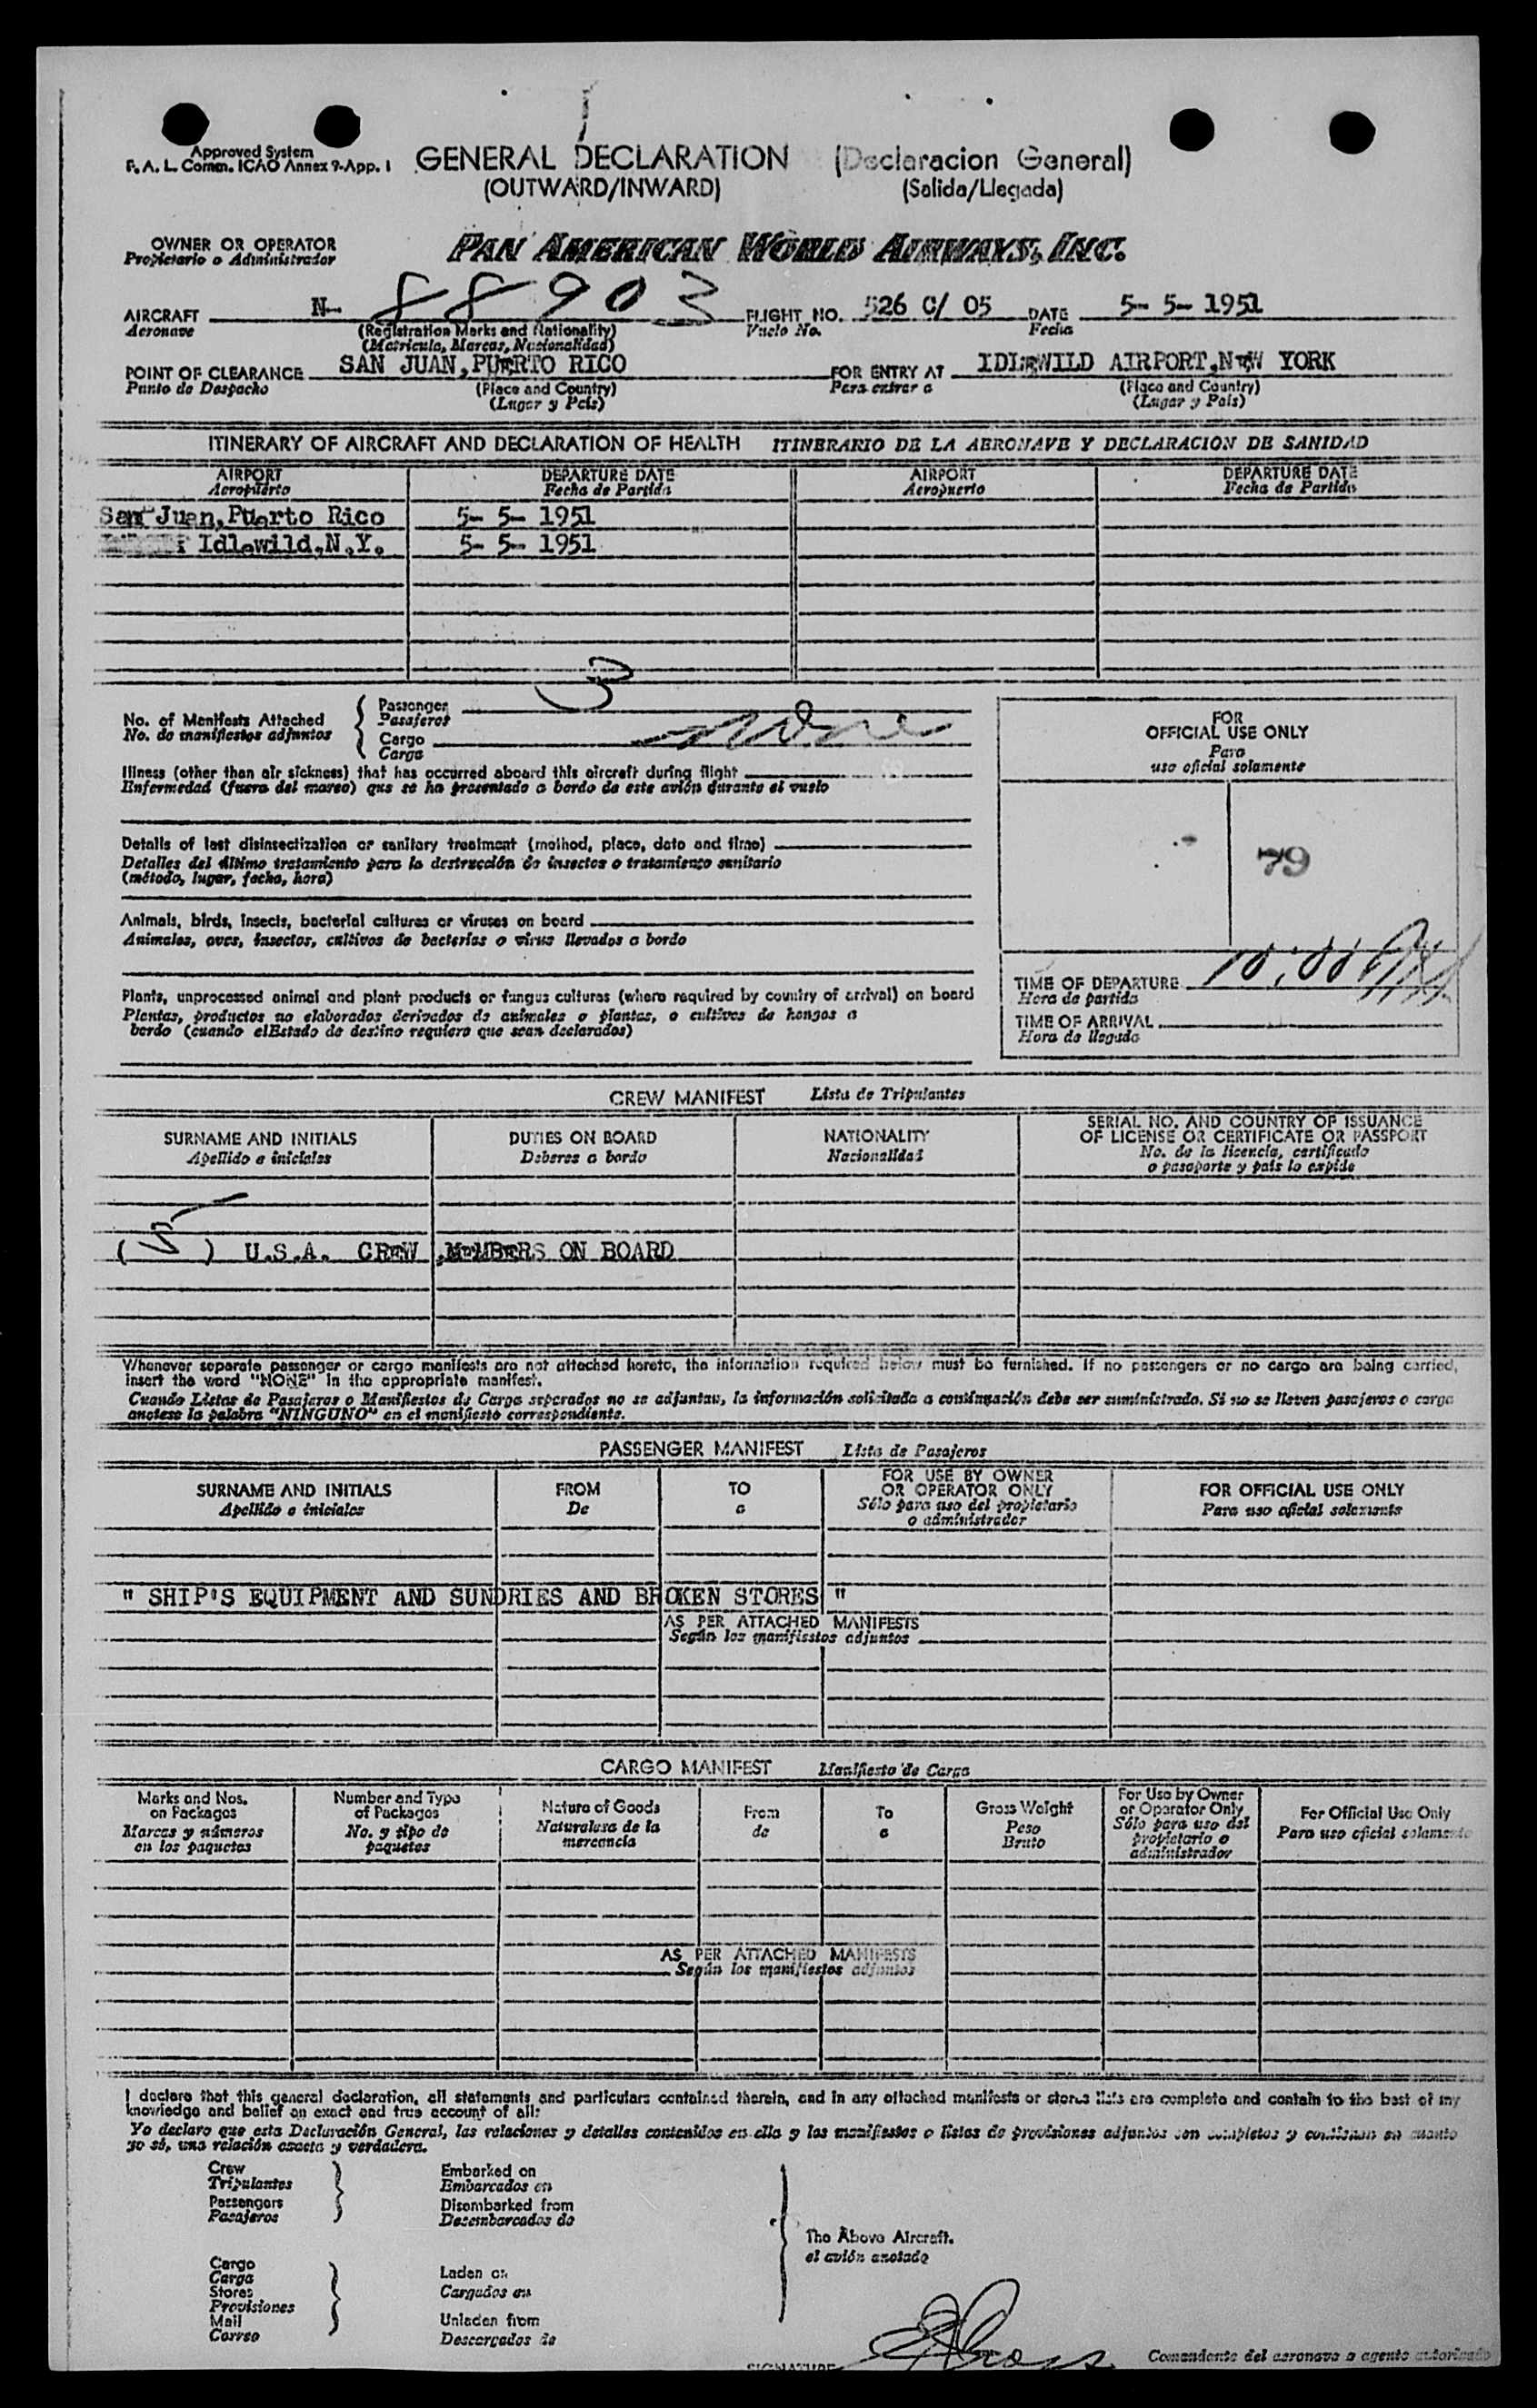 Approved System
F. A. L. Comm. ICAO Annex 9-App. 1
GENERAL DECLARATION (Declaracion General)
(OUTWARD/INWARD) (Salida/Llegada)
OWNER OR OPERATOR PAN AMERICAN WORLD AIRWAYS, INC.
Propietario o Administrador
AIRCRAFT N- 88903 FLIGHT NO. 526 C/ 05 DATE 5- 5- 1951
Aeronave (Registration Marks and Nationality) Vuelo No. Fecha
(Matricula, Marcas, Nacionalidad)
POINT OF CLEARANCE SAN JUAN, PUERTO RICO FOR ENTRY AT IDLEWILD AIRPORT, NEW YORK
Punto de Despacho (Place and Country) Para entrar a (Place and Country)
(Lugar y País) (Lugar y País)
ITINERARY OF AIRCRAFT AND DECLARATION OF HEALTH ITINERARIO DE LA AERONAVE Y DECLARACION DE SANIDAD
AIRPORT DEPARTURE DATE AIRPORT DEPARTURE DATE
Aeropuerto Fecha de Partida Aeropuerto Fecha de Partida
San Juan, Puerto Rico 5- 5- 1951
Idlewild, N.Y. 5- 5- 1951
No. of Manifests Attached Passenger 3
No. de manifiestos adjuntos Pasajeros
Cargo none
Carga
Illness (other than air sickness) that has occurred aboard this aircraft during flight
Enfermedad (fuera del mareo) que se ha presentado a bordo de este avión durante el vuelo
Details of last disinsectization or sanitary treatment (method, place, date and time)
Detalles del último tratamiento para la destrucción de insectos o tratamiento sanitario
(método, lugar, fecha, hora)
Animals, birds, insects, bacterial cultures or viruses on board
Animales, aves, insectos, cultivos de bacterias o virus llevados a bordo
Plants, unprocessed animal and plant products or fungus cultures (where required by country of arrival) on board
Plantas, productos no elaborados derivados de animales o plantas, o cultivos de hongos a
bordo (cuando elEstado de destino requiera que sean declarados)
FOR
OFFICIAL USE ONLY
Para
uso oficial solamente
79
TIME OF DEPARTURE 10:00
Hora de partida
TIME OF ARRIVAL
Hora de llegada
CREW MANIFEST Lista de Tripulantes
SURNAME AND INITIALS DUTIES ON BOARD NATIONALITY SERIAL NO. AND COUNTRY OF ISSUANCE
OF LICENSE OR CERTIFICATE OR PASSPORT
Apellido e iniciales Deberes a bordo Nacionalidad No. de la licencia, certificado
o pasaporte y país lo expide
( 5 ) U.S.A. CREW MEMBERS ON BOARD
Whenever separate passenger or cargo manifests are not attached hereto, the information required below must be furnished. If no passengers or no cargo are being carried,
insert the word "NONE" in the appropriate manifest.
Cuando Listas de Pasajeros o Manifiestos de Carga separados no se adjuntan, la información solicitada a continuación debe ser suministrada. Si no se lleven pasajeros o carga
anotese la palabra "NINGUNO" en el manifiesto correspondiente.
PASSENGER MANIFEST Lista de Pasajeros
SURNAME AND INITIALS FROM TO FOR USE BY OWNER
OR OPERATOR ONLY FOR OFFICIAL USE ONLY
Apellido e iniciales De a Sólo para uso del propietario
o administrador Para uso oficial solamente
" SHIP'S EQUIPMENT AND SUNDRIES AND BROKEN STORES "
AS PER ATTACHED MANIFESTS
Según los manifiestos adjuntos
CARGO MANIFEST Manifiesto de Carga
Marks and Nos.
on Packages
Marcas y números
en los paquetes
Number and Type
of Packages
No. y tipo de
paquetes
Nature of Goods
Naturalesa de la
mercancía
From
de
To
a
Gross Weight
Peso
Bruto
For Use by Owner
or Operator Only
Sólo para uso del
propietario o
administrador
For Official Use Only
Para uso oficial solamente
AS PER ATTACHED MANIFESTS
Según los manifiestos adjuntos
I declare that this general declaration, all statements and particulars contained therein, and in any attached manifests or stores lists are complete and contain to the best of my
knowledge and belief an exact and true account of all:
Yo declaro que esta Declaración General, las relaciones y detalles contenidos en ella y los manifiestos o listas de provisiones adjuntos son completos y contienen en cuanto
yo sé, una relación exacta y verdadera.
Crew Embarked on
Tripulantes Embarcados en
Passengers Disembarked from
Pasajeros Desembarcados de
The Above Aircraft.
el avión anotado
Cargo
Carga Laden on
Stores Cargados en
Provisiones
Mail Unladen from
Correo Descargados de
SIGNATURE
Comandante del aeronave o agente autorizado